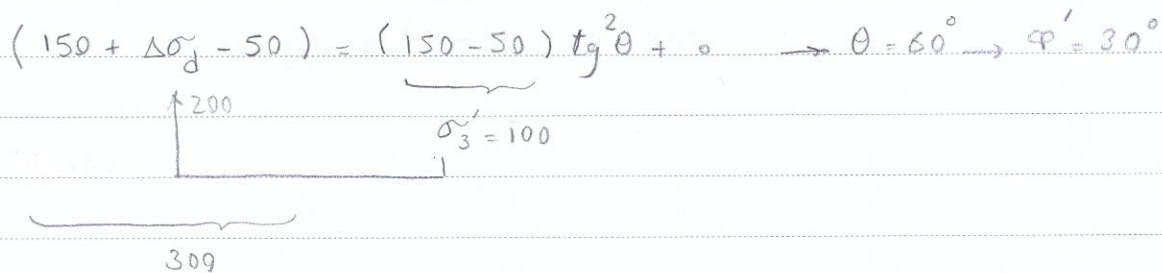 (150 + Δσd - 50) = (150 - 50) tg²θ + 0 → θ = 60° → φ' = 30°
200
σ₃' = 100
309